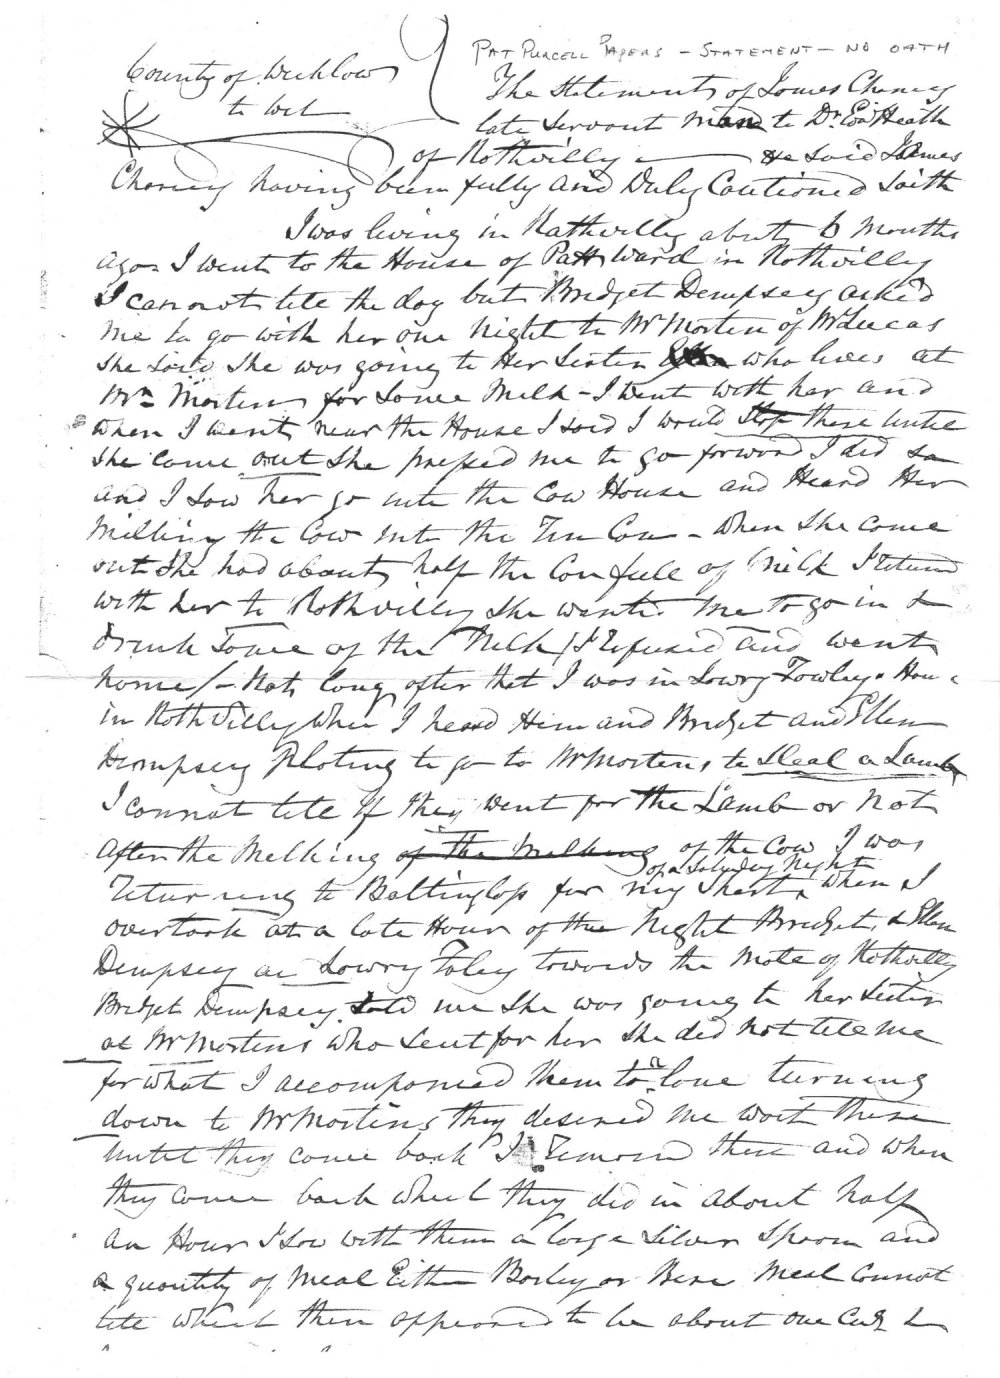 PAT PURCELL PAPERS - STATEMENT - NO OATH
County of Wicklow
to wit
The Statements of James Chaney
late Servant man to Dr. Edwd Heath
of Rathvilly - He said James
Chaney having been fully and Duly Cautioned Saith
I was living in Rathvilly about 6 Months
ago I went to the House of Patt Ward in Rathvilly
I cannot tele the day but Bridget Dempsey asked
me to go with her one Night to Mr Morten of Mt Lucas
She Said She was going to Her Sister who lives at
Mr Mortens for Some Milk - I went with her and
when I went near the House I said I would Stop there until
She came out She pressed me to go forward I did so
and I saw her go into the Cow House and Heard Her
Milking the Cow into the Tin Can - When She came
out She had about half the Can full of Milk I Returned
with her to Rathvilly She wanted me to go in &
drink Some of the Milk / I Refused and went
home / - Not long after that I was in Lowry Fowley's House
in Rathvilly When I heard Him and Bridget and Ellen
Dempsey Ploting to go to Mr Mortens to Steal a Lamb
I cannot tele If they went for the Lamb or Not
After the Melking of the Melking of the Cow I was
of a Saturday Night
Returning to Baltinglass for my Shert When I
overtook at a late Hour of the Night Bridget & Ellen
Dempsey an Lowry Foley towards the Mote of Rathvilly
Bridget Dempsey told me She was going to her Sister
at Mr Mortens who Sent for her She did Not tele me
for what I accompanied them to a lane turning
down to Mr Mortens they desired me wait There
Until they came back I Remained there and when
they came back which they did in about half
an Hour I Saw with them a large Silver Spoon and
a quantity of Meal Either Barley or Bere Meal Cannot
tele which then appeared to be about one Cwt &